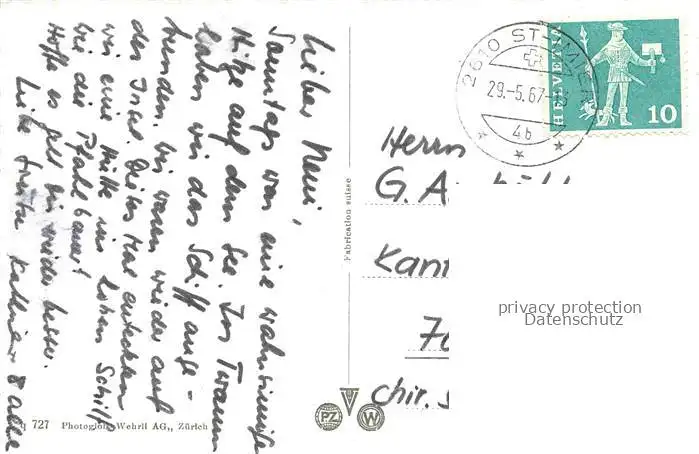 Lieber Neni,
Samstags war eine wahnsinnige
Hitze auf dem See. In Twann
haben wir das Schiff ange-
bunden. Wir waren wieder auf
der Insel. Dieses Mal entdeckten
wir eine Hütte im hohen Schilf
wie die Pfahlbauer!
Hoffe es geht Dir wieder besser.
Liebe Grüsse Kathrin & alle
727 Photoglob-Wehrli AG., Zürich
Fabrication suisse
PZ W
2610 ST-IMIER
29.-5.67
4b
HELVETIA
10
Herrn
G.
Kant
chir.
privacy protection
Datenschutz